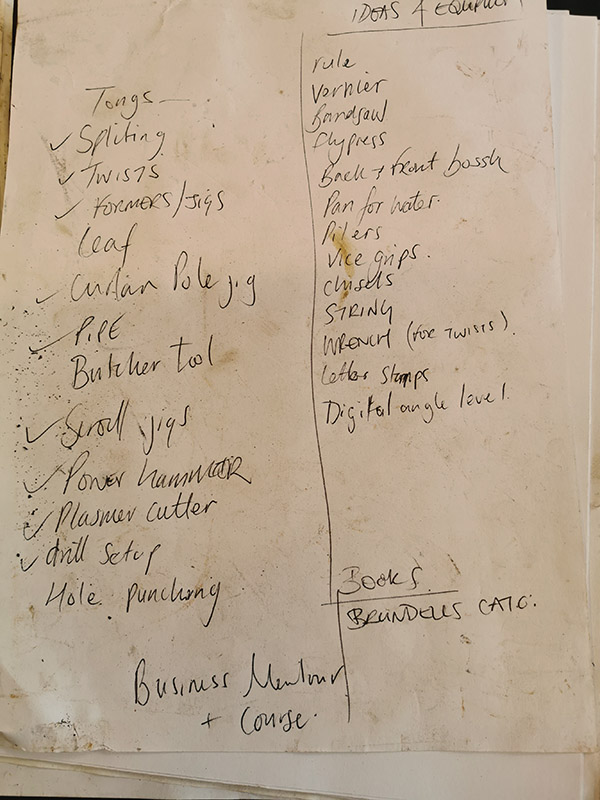 Tongs
✓ Spliting
✓ Twists
✓ FORMERS/JIGS
Leaf
✓ Curtain Pole jig
✓ PIPE
Butcher tool
✓ Scroll jigs
✓ Power hammer
✓ Plasmer cutter
✓ drill setup
Hole punching
Business Mentour
+ Course.
IDEAS 4 EQUIPMENT
rule
Vernier
Bandsaw
flypress
Back + front bossh
Pan for water.
Pilers
Vice grips.
chisels
STRING
WRENCH (for TWISTS)
Letter stamps
Digital angle level.
Books
BRUNDELLS CATO: